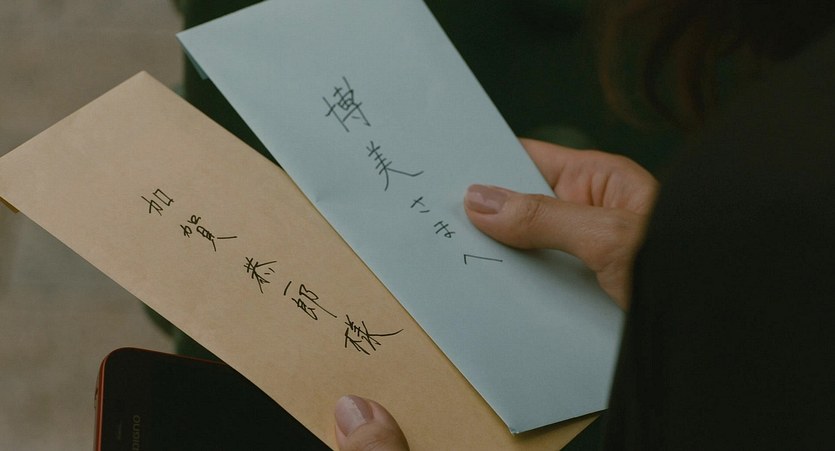 博美さまへ
加賀恭一郎様